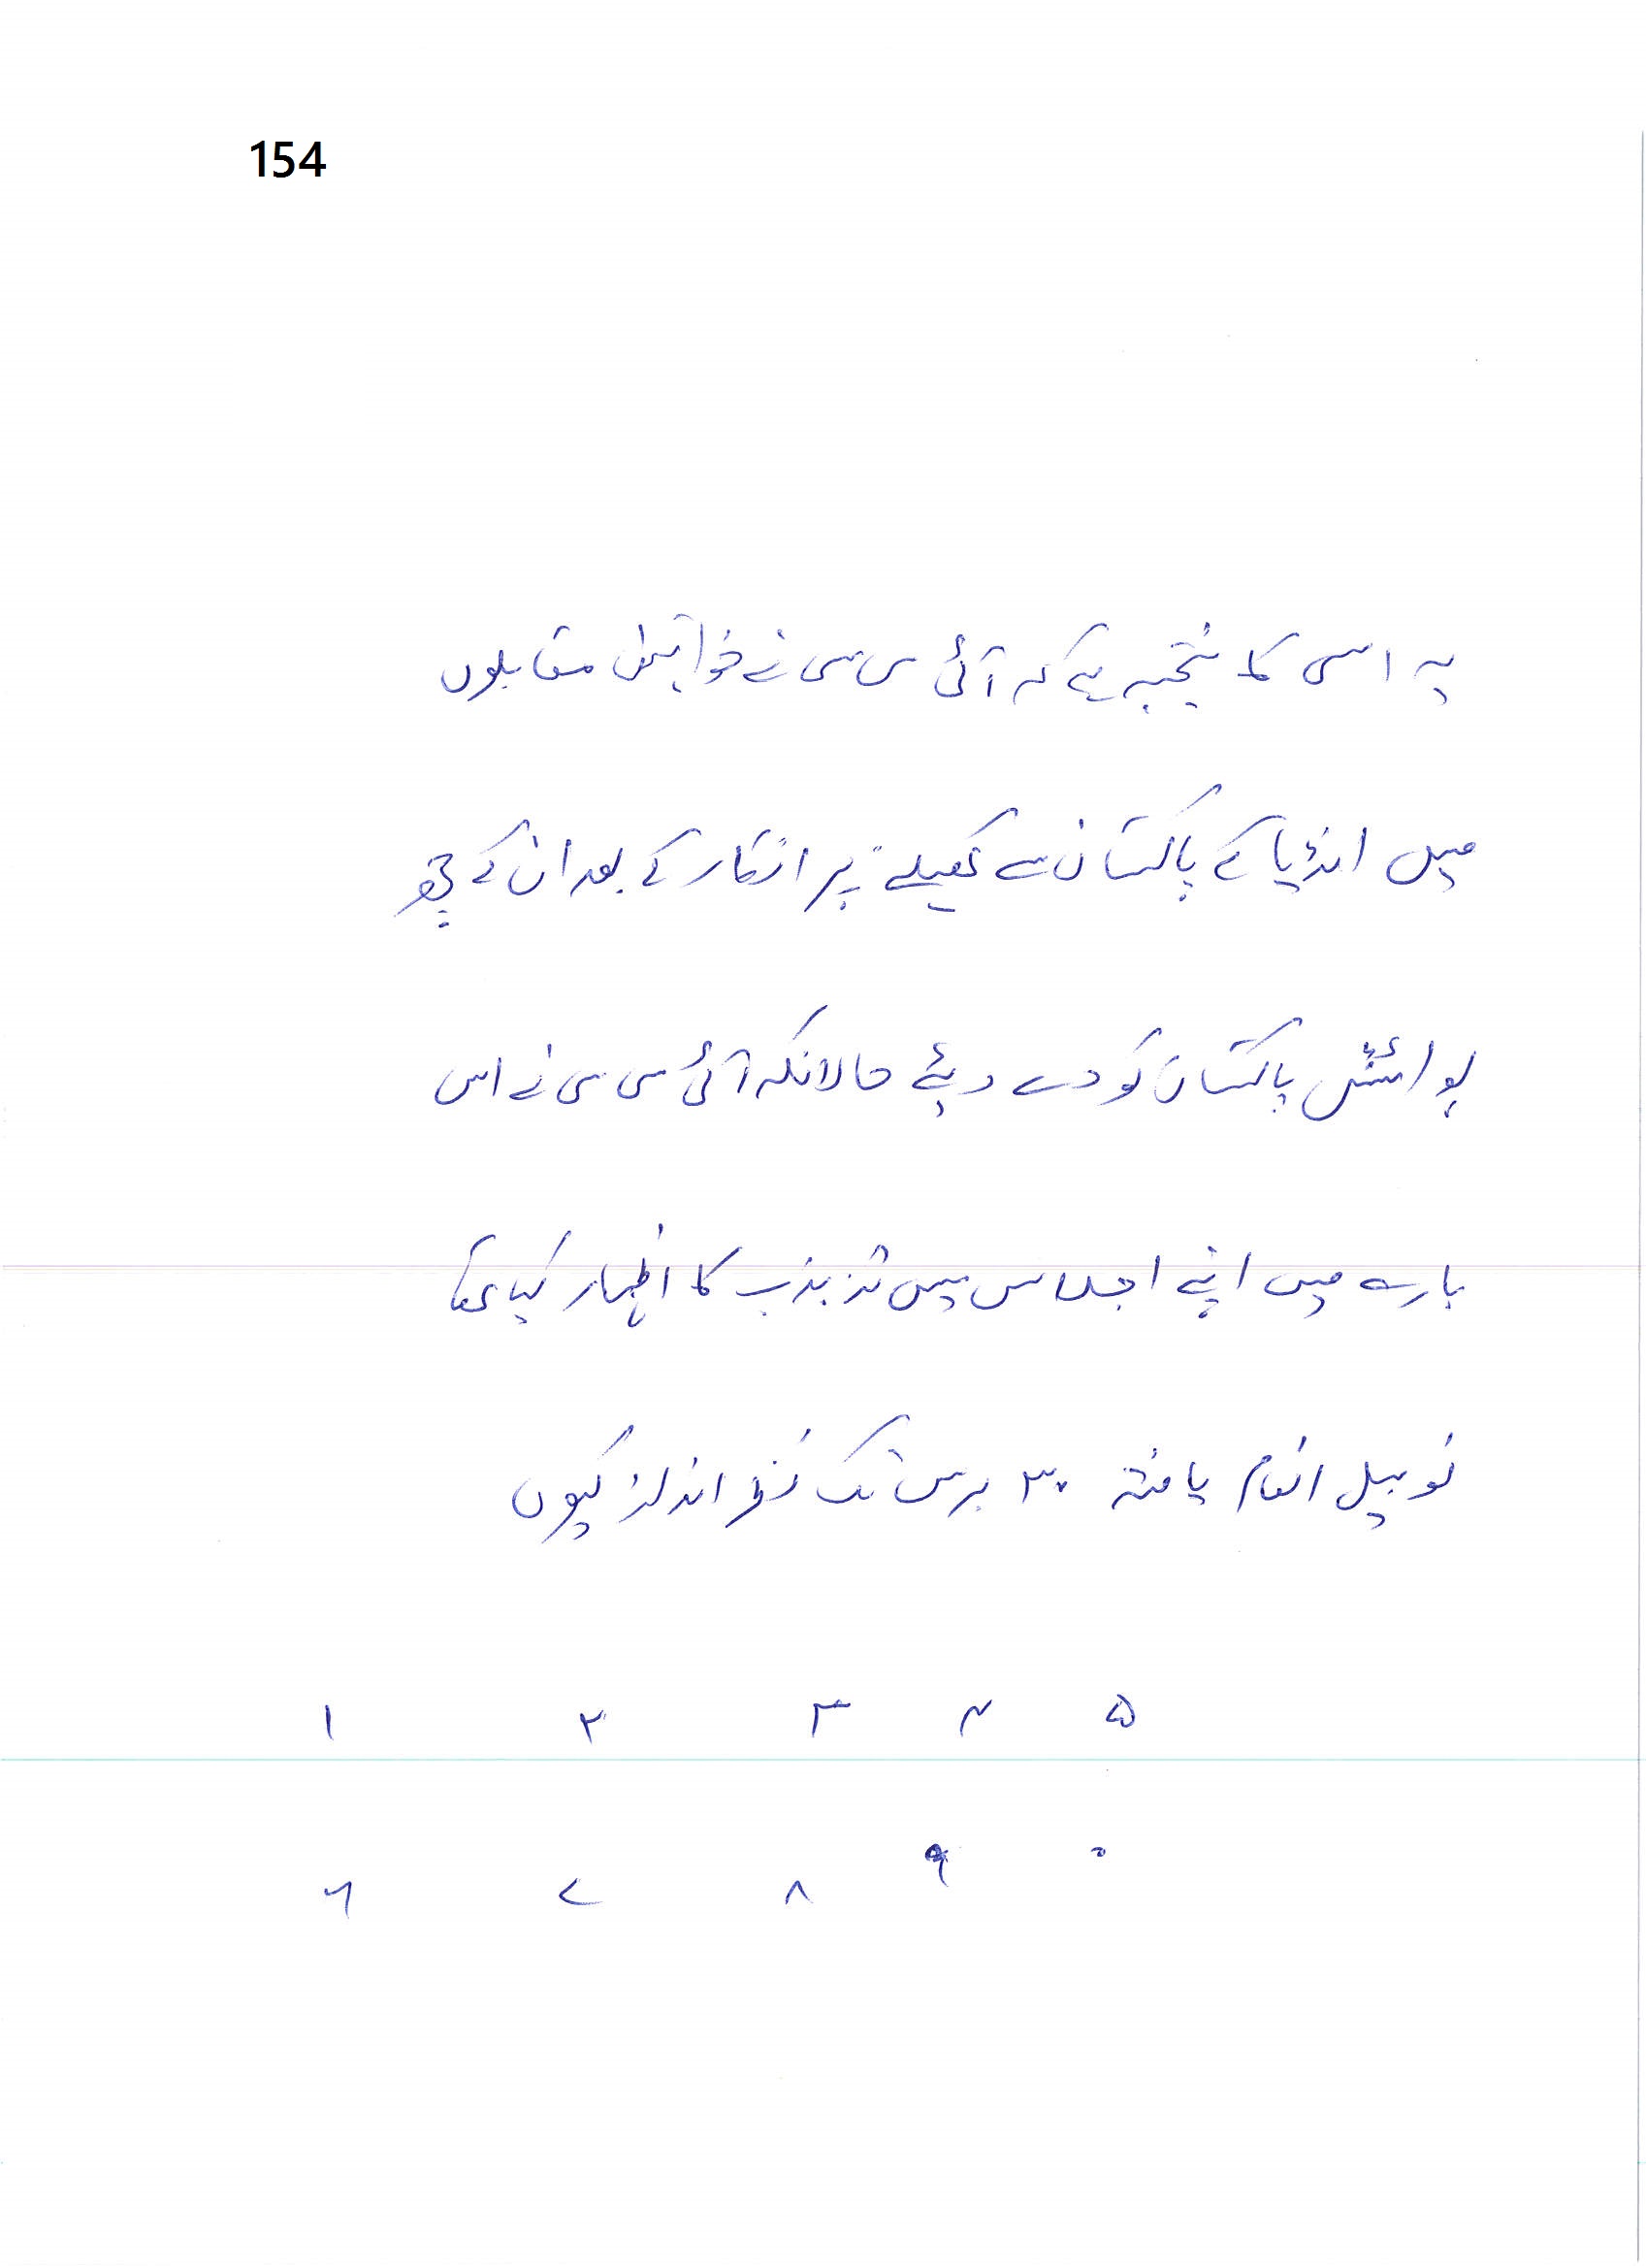 154
یہ اسی کا نتیجہ ہے کہ آئی سی سی نے خواتین مقابلوں
میں انڈیا کے پاکستان سے کھیلنے پر انکار کے بعد ان کے چھ
پوائنٹس پاکستان کو دے دیئے حالانکہ آئی سی سی نے اس
بارے میں اپنے اجلاس میں تذبذب کا اظہار کیا تھا
نوبیل انعام یافتہ ۳۰ برس تک نظر انداز کیوں
۱ ۲ ۳ ۴ ۵
۶ ۷ ۸ ۹ ۰